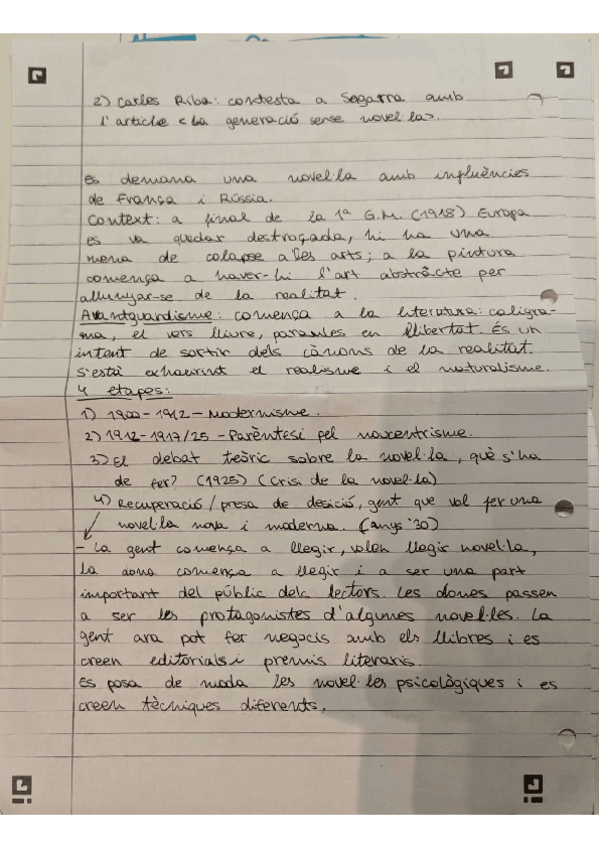 2) Carles Riba: contesta a Segarra amb
l'article <La generació sense novel·la>.
Es demana una novel·la amb influències
de França i Rússia.
Context: a final de la 1ª G.M. (1918) Europa
es va quedar destroçada, hi ha una
mena de colapse a les arts; a la pintura
comença a haver-hi l'art abstràcte per
allunyar-se de la realitat.
Avantguardisme: comença a la literatura: caligra-
ma, el vers lliure, paraules en llibertat. És un
intent de sortir dels cànons de la realitat.
S'està exhaurint el realisme i el naturalisme.
4 etapes:
1) 1900-1912 - Modernisme.
2) 1912-1917/25 - Parèntesi pel noucentrisme.
3) El debat teòric sobre la novel·la, què s'ha
de fer? (1925) (Crisi de la novel·la)
4) Recuperació / presa de desició, gent que vol fer una
novel·la nova i moderna. (anys '30)
- La gent comença a llegir, volen llegir novel·la,
la dona comença a llegir i a ser una part
important del públic dels lectors. Les dones passen
a ser les protagonistes d'algunes novel·les. La
gent ara pot fer negocis amb els llibres i es
creen editorials i premis literaris.
Es posa de moda les novel·les psicològiques i es
creen tècniques diferents.